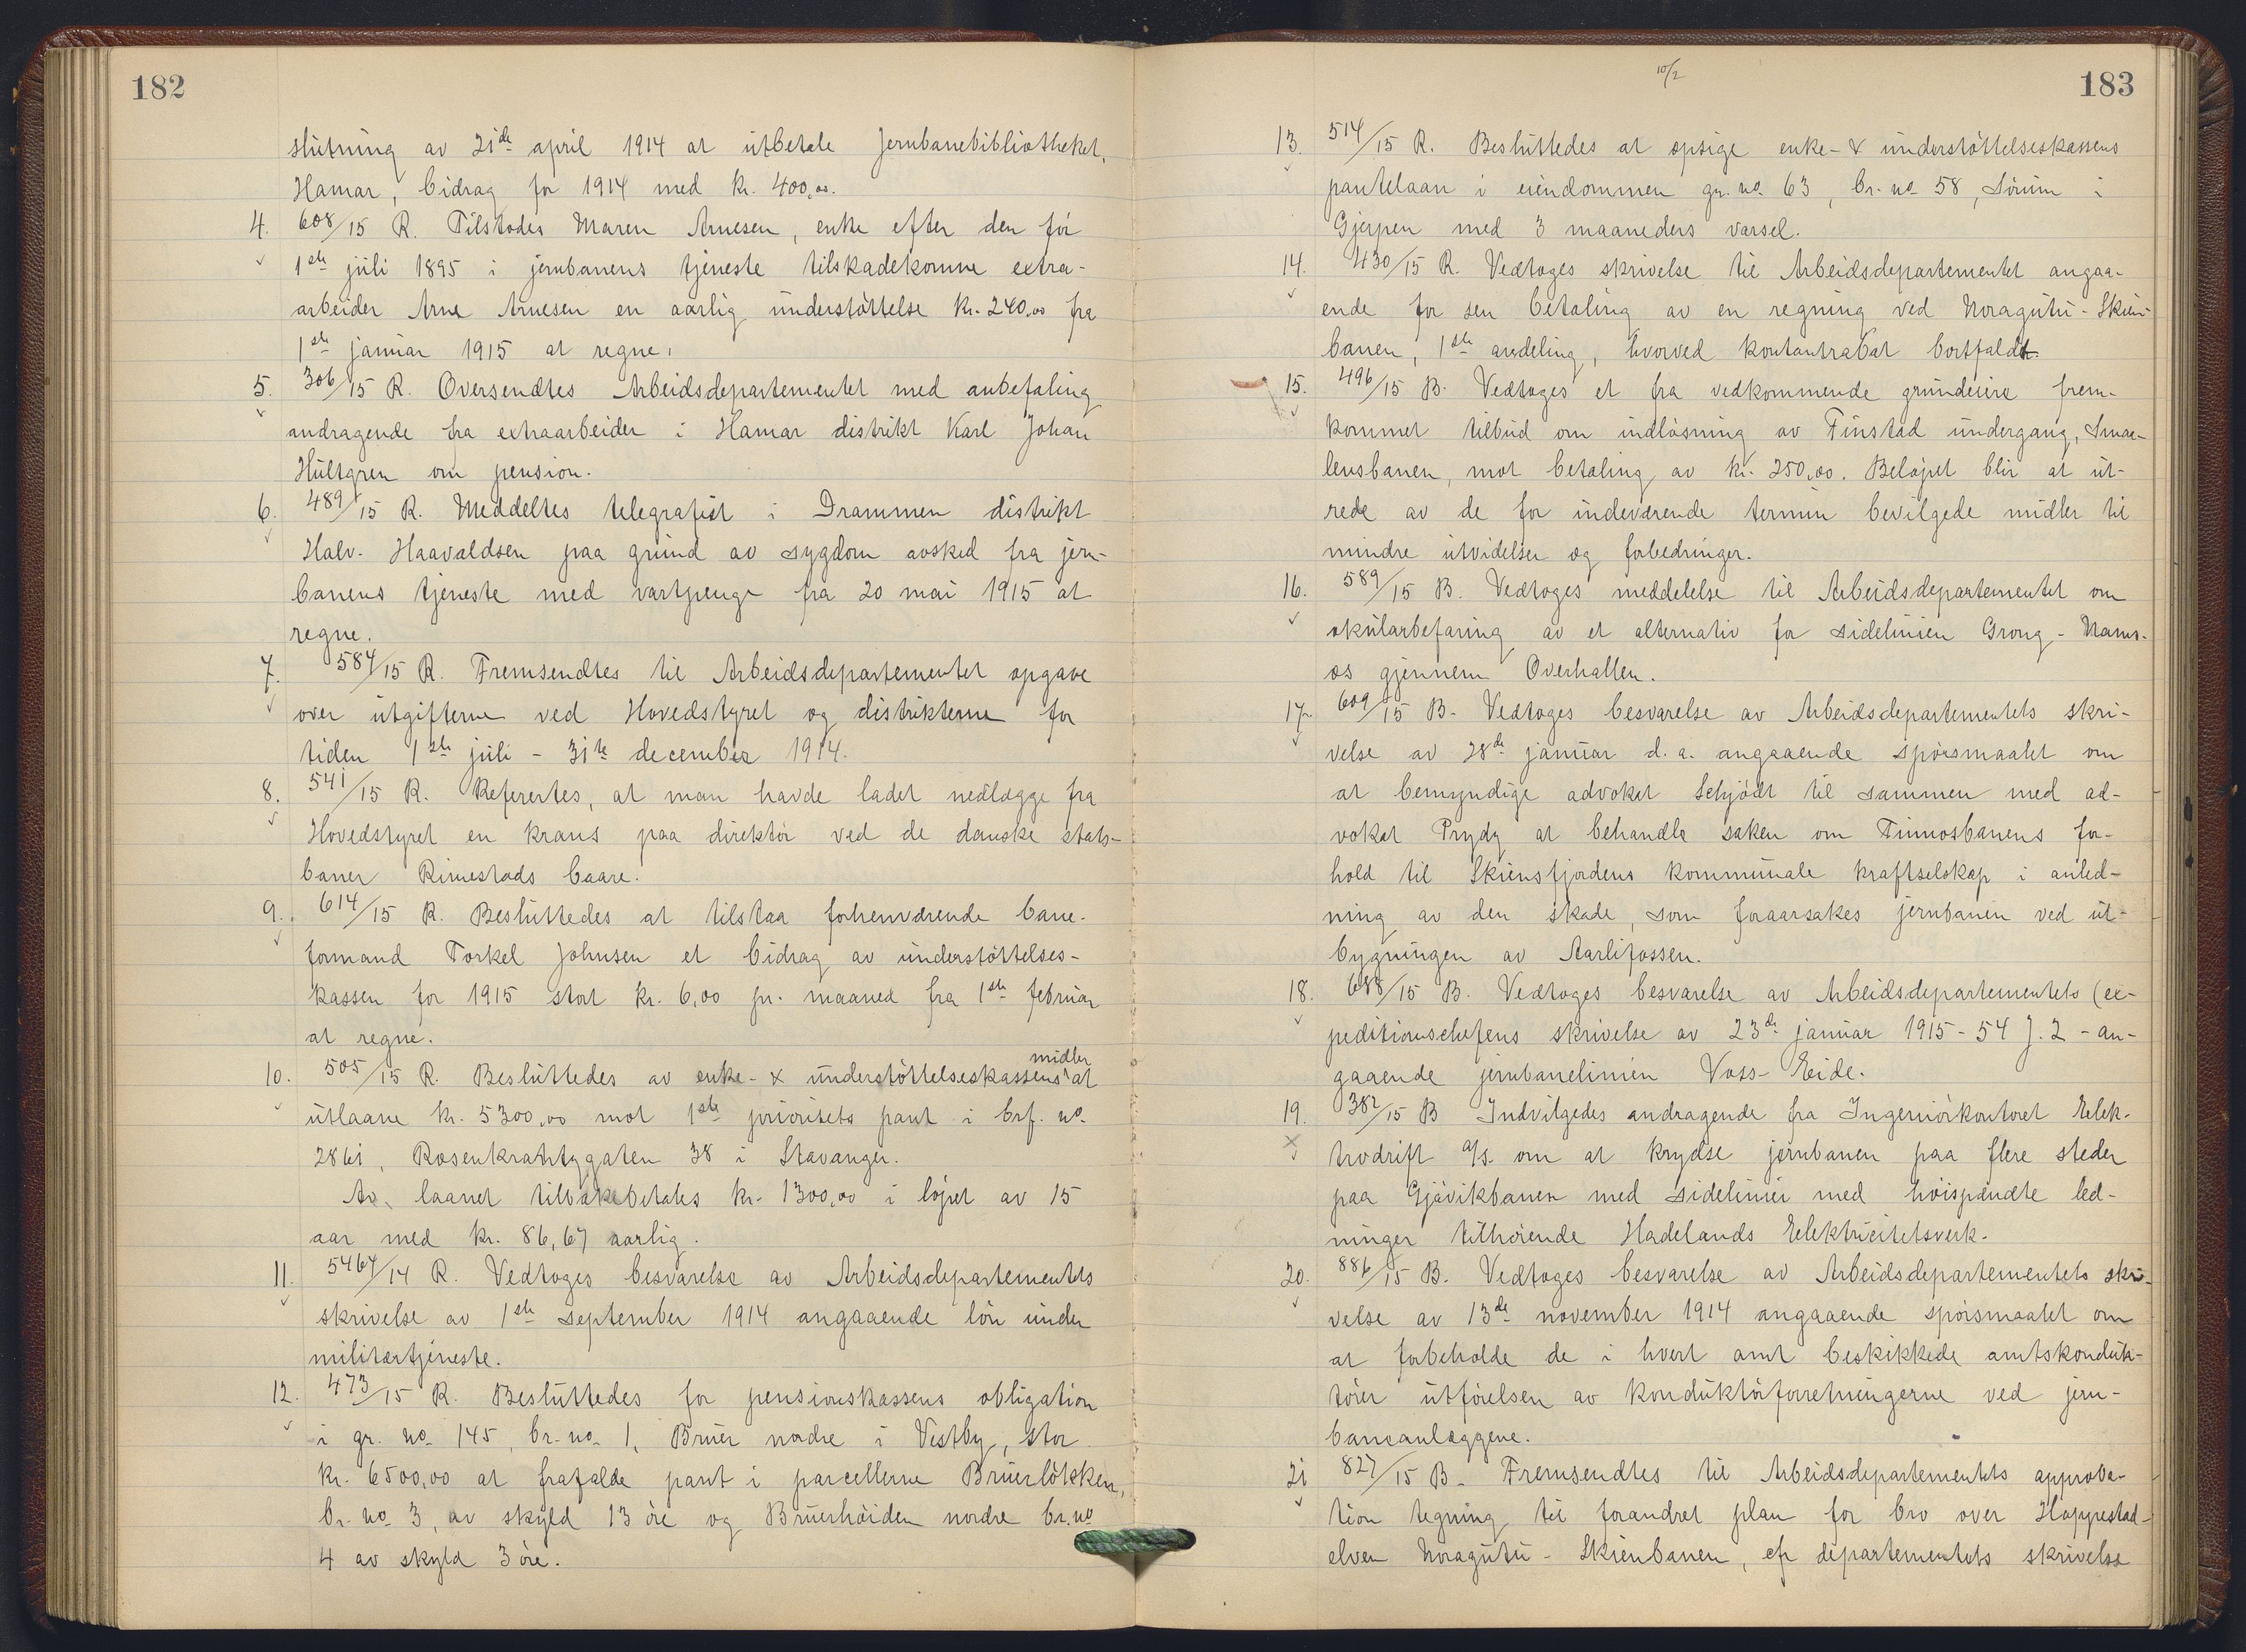 182
slutning av 21de april 1914 at utbetale Jernbanebibliotheket,
Hamar, bidrag for 1914 med kr. 400,00.
4. 608/15 R. Tilstodes Maren Arnesen, enke efter den før
1ste juli 1895 i jernbanens tjeneste tilskadekomne extra-
arbeider Arne Arnesen en aarlig understøttelse kr. 240,00 fra
1ste januar 1915 at regne.
5. 306/15 R. Oversendtes Arbeidsdepartementet med anbefaling
andragende fra extraarbeider i Hamar distrikt Karl Johan
Hultgren om pension.
6. 489/15 R. Meddeltes telegrafist i Drammen distrikt
Halv. Haavaldsen paa grund av sygdom avsked fra jern-
banens tjeneste med vartpenge fra 20 mai 1915 at
regne.
7. 584/15 R. Fremsendtes til Arbeidsdepartementet opgave
over utgifterne ved Hovedstyret og distrikterne for
tiden 1ste juli - 31te december 1914.
8. 541/15 R. Refertes, at man havde ladet nedlægge fra
Hovedstyret en krans paa direktør ved de danske stats-
baner Rimestads baare.
9. 614/15 R. Besluttedes at tilstaa forhenværende bane-
formand Torkel Johnsen et bidrag av understøttelses-
kassen for 1915 stort kr. 6,00 pr. maaned fra 1ste februar
at regne.
10. 505/15 R. Besluttedes av enke- & understøttelseskassens midler at
utlaane kr. 5300,00 mot 1ste prioritets pant i brf. no.
2861, Rosenkrantzgaten 38 i Stavanger.
Av laanet tilbakebetales kr. 1300,00 i løpet av 15
aar med kr. 86,67 aarlig.
11. 5464/14 R. Vedtoges besvarelse av Arbeidsdepartementets
skrivelse av 1ste september 1914 angaaende løn under
militærtjeneste.
12. 473/15 R. Besluttedes for pensionskassens obligation
i gr. no. 145, br. no. 1, Bruer nordre i Vestby, stor
kr. 6500,00 at frafalde pant i parcellerne Bruerløkken,
br. no 3, av skyld 13 øre og Bruerhøiden nordre br. no
4 av skyld 3 øre.
10/2
183
13. 514/15 R. Besluttedes at opsige enke- & understøttelseskassens
pantelaan i eiendommen gr. no. 63, br. no 58, Sørum i
Gjerpen med 3 maaneders varsel.
14. 430/15 R. Vedtoges skrivelse til Arbeidsdepartementet angaa-
ende for sen betaling av en regning ved Noragutu - Skien-
banen, 1ste avdeling, hvorved kontantrabat bortfaldt.
15. 496/15 B. Vedtoges et fra vedkommende grundeiere frem-
kommet tilbud om indløsning av Finstad undergang, Smaa-
lensbanen, mot betaling av kr. 250,00. Beløpet blir at ut-
rede av de for indeværende termin bevilgede midler til
mindre utvidelser og forbedringer.
16. 589/15 B. Vedtoges meddelelse til Arbeidsdepartementet om
okularbefaring av et alternativ for sidelinien Grong - Nams-
os gjennem Overhallen.
17. 609/15 B. Vedtoges besvarelse av Arbeidsdepartementets skri-
velse av 28de januar d. a. angaaende spørsmaalet om
at bemyndige advokat Schjødt til sammen med ad-
vokat Prydz at behandle saken om Tinnosbanens for-
hold til Skiensfjordens kommunale kraftselskap i anled-
ning av den skade, som foraarsakes jernbanen ved ut-
bygningen av Aarlifossen.
18. 688/15 B. Vedtoges besvarelse av Arbeidsdepartementets (ex-
peditionschefens skrivelse av 23de januar 1915 - 54 J. 2 - an-
gaaende jernbanelinien Voss - Eide.
19. 382/15 B Indvilgedes andragende fra Ingeniørkontoret Elek-
trodrift A/S. om at krydse jernbanen paa flere steder
paa Gjøvikbanen med sidelinier med høispændte led-
ninger tilhørende Hadelands Elektricitetsverk.
20. 886/15 B. Vedtoges besvarelse av Arbeidsdepartementets skri-
velse av 13de november 1914 angaaende spørsmaalet om
at forbeholde de i hvert amt beskikkede amtskonduk-
tører utførelsen av konduktørforretningerne ved jern-
baneanlæggene.
21 827/15 B. Fremsendtes til Arbeidsdepartementets approba-
tion tegning til forandret plan for bro over Hoppestad-
elven Noragutu - Skienbanen, cfr departementets skrivelse